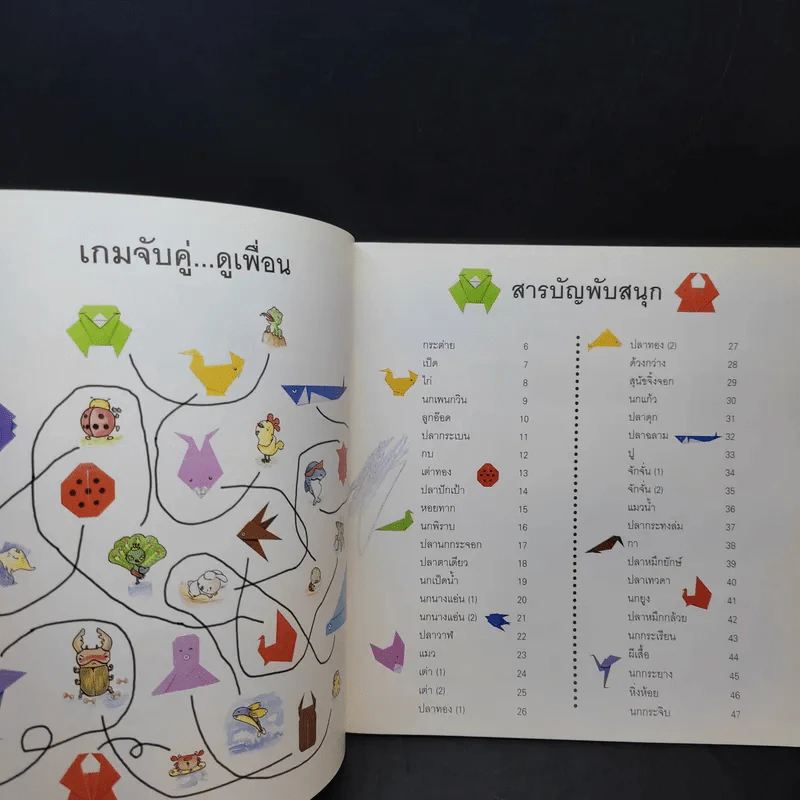 เกมจับคู่...ดูเพื่อน
สารบัญพับสนุก
กระต่าย 6
เป็ด 7
ไก่ 8
นกเพนกวิน 9
ลูกอ๊อด 10
ปลากระเบน 11
กบ 12
เต่าทอง 13
ปลาปักเป้า 14
หอยทาก 15
นกพิราบ 16
ปลานกกระจอก 17
ปลาตาเดียว 18
นกเป็ดน้ำ 19
นกนางแอ่น (1) 20
นกนางแอ่น (2) 21
ปลาวาฬ 22
แมว 23
เต่า (1) 24
เต่า (2) 25
ปลาทอง (1) 26
ปลาทอง (2) 27
ด้วงกว่าง 28
สุนัขจิ้งจอก 29
นกแก้ว 30
ปลาดุก 31
ปลาฉลาม 32
ปู 33
จักจั่น (1) 34
จักจั่น (2) 35
แมวน้ำ 36
ปลากระทงล่ม 37
กา 38
ปลาหมึกยักษ์ 39
ปลาเทวดา 40
นกยูง 41
ปลาหมึกกล้วย 42
นกกระเรียน 43
ผีเสื้อ 44
นกกระยาง 45
หิ่งห้อย 46
นกกระจิบ 47